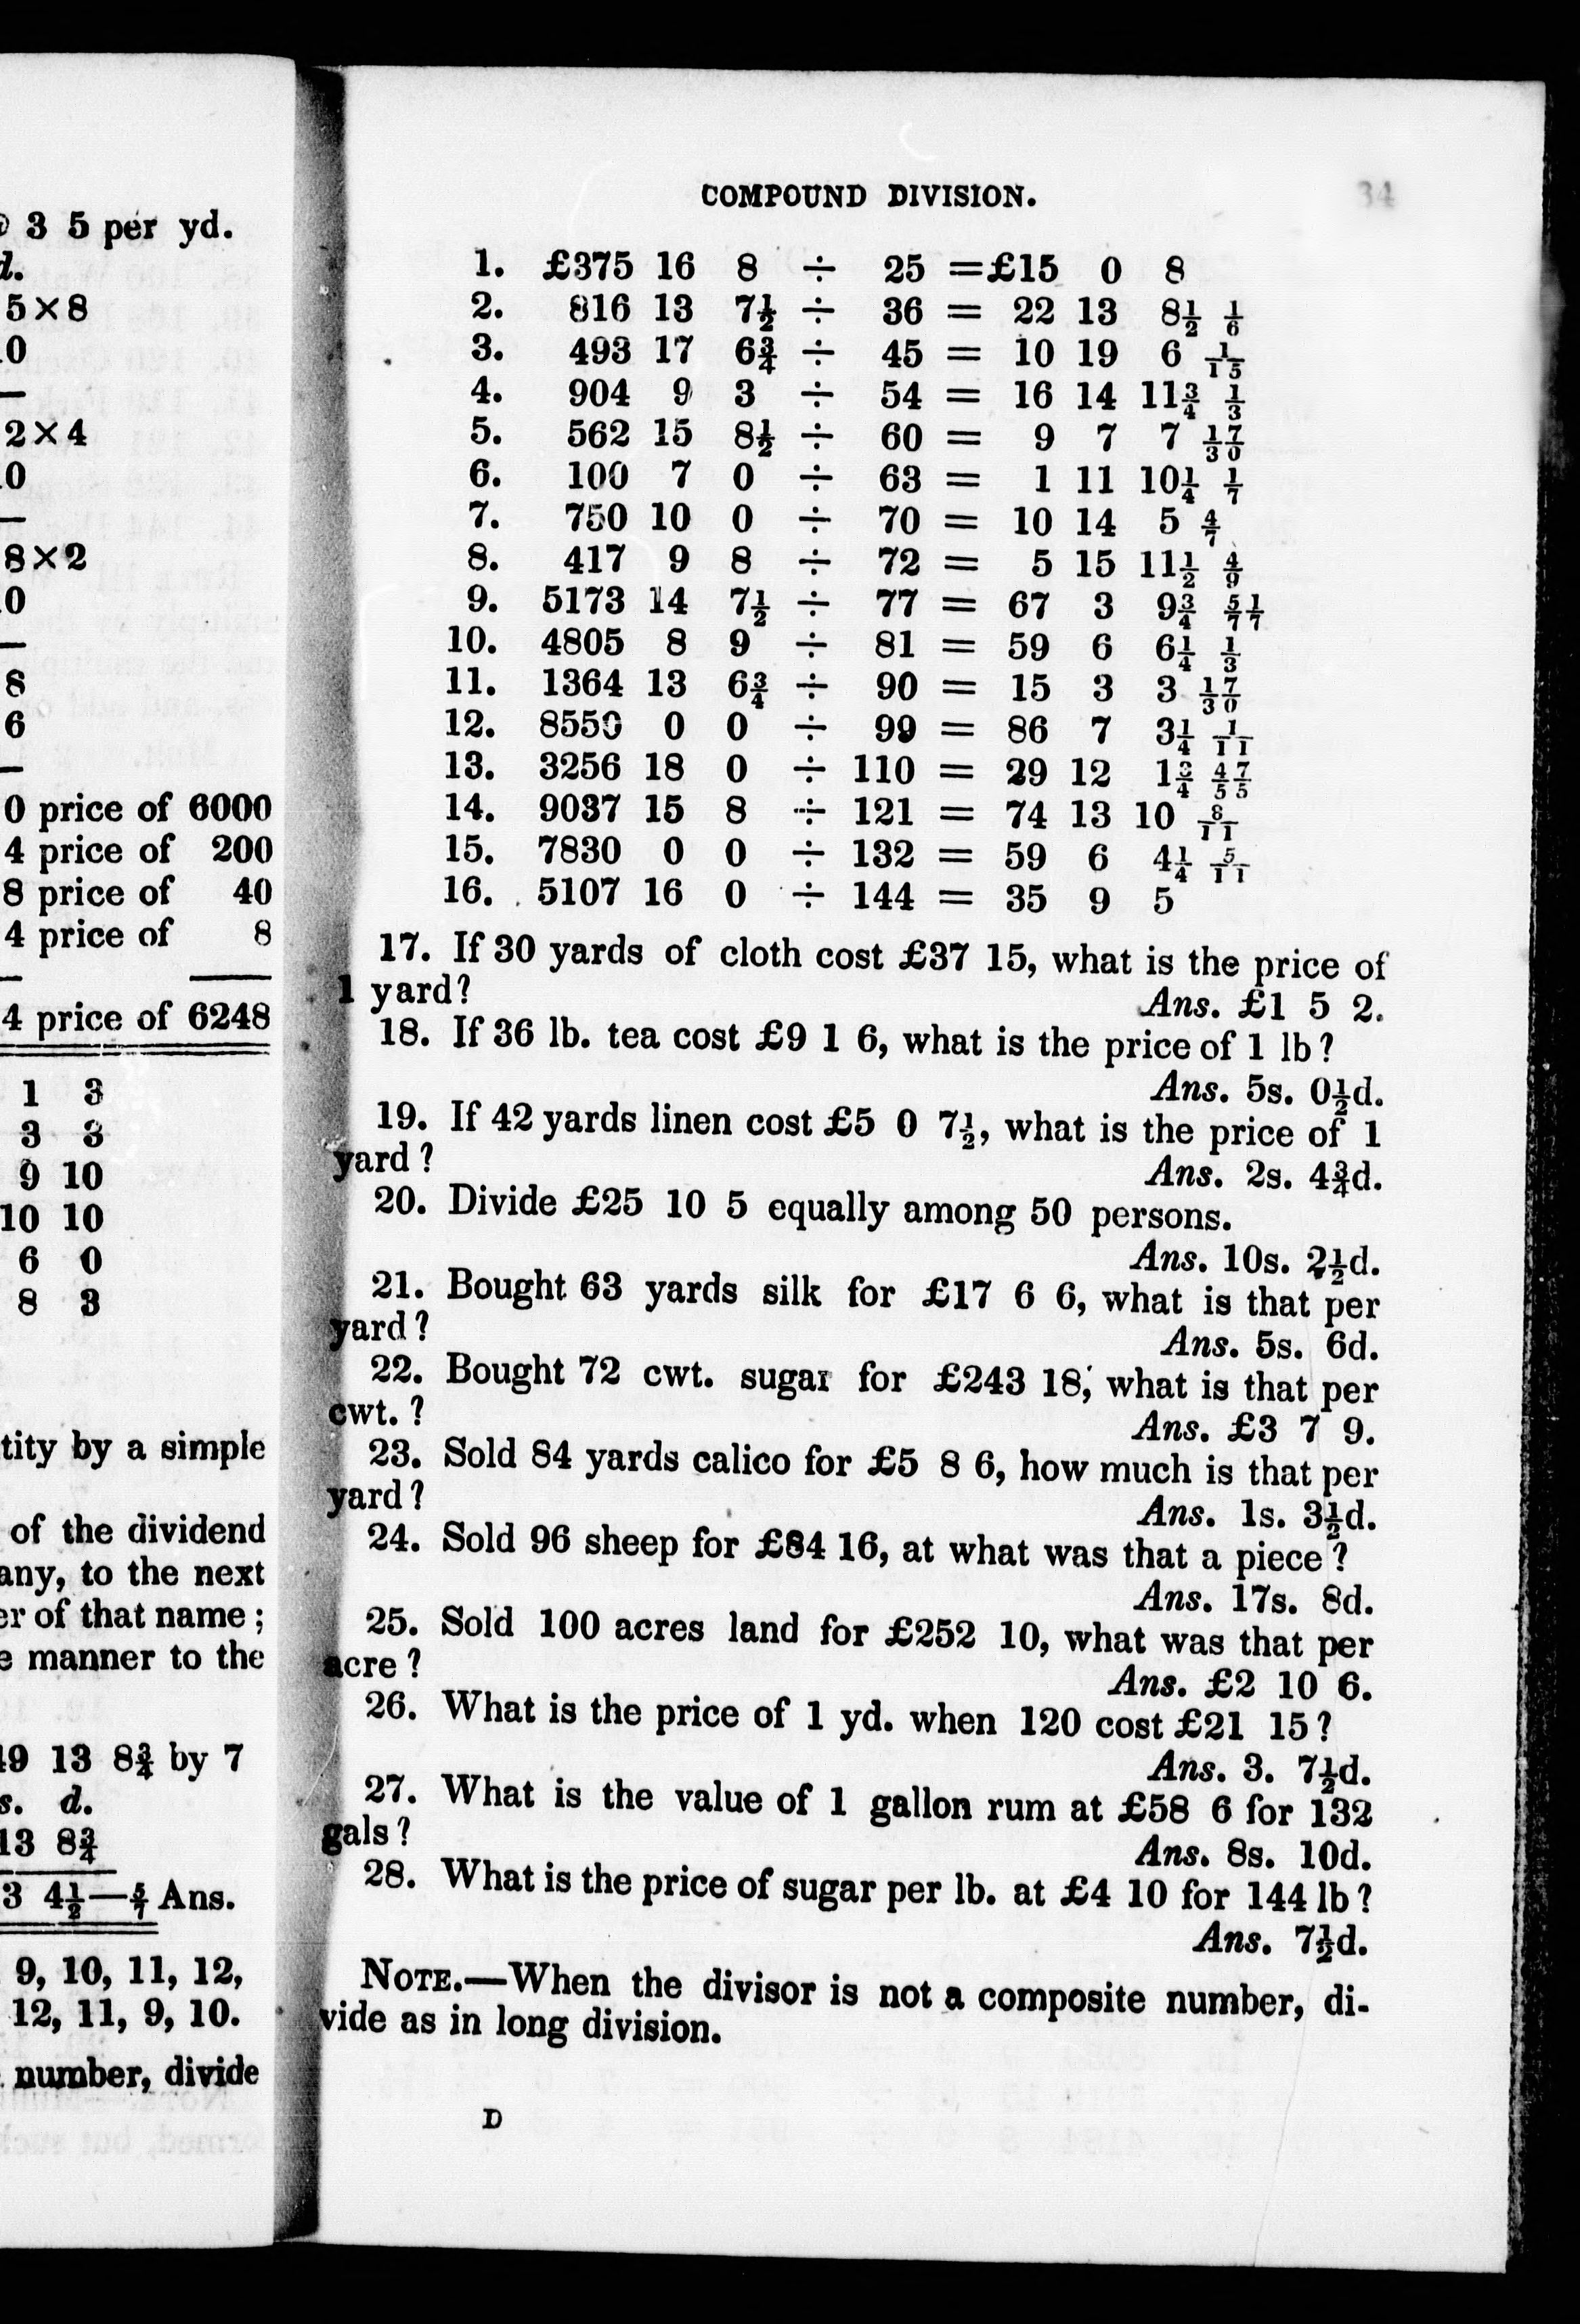 @ 3 5 per yd.
d.
5×8
0
2×4
0
8×2
0
8
6
0 price of 6000
4 price of 200
8 price of 40
4 price of 8
4 price of 6248
1 3
3 3
9 10
10 10
6 0
8 3
tity by a simple
of the dividend
any, to the next
er of that name;
e manner to the
49 13 8¾ by 7
s. d.
13 8¾
3 4½—5/7 Ans.
9, 10, 11, 12,
12, 11, 9, 10.
number, divide
COMPOUND DIVISION. 34
1. £375 16 8 ÷ 25 =£15 0 8
2. 816 13 7½ ÷ 36 = 22 13 8½ 1/6
3. 493 17 6¾ ÷ 45 = 10 19 6 1/15
4. 904 9 3 ÷ 54 = 16 14 11¾ 1/3
5. 562 15 8½ ÷ 60 = 9 7 7 17/30
6. 100 7 0 ÷ 63 = 1 11 10¼ 1/7
7. 750 10 0 ÷ 70 = 10 14 5 4/7
8. 417 9 8 ÷ 72 = 5 15 11½ 4/9
9. 5173 14 7½ ÷ 77 = 67 3 9¾ 51/77
10. 4805 8 9 ÷ 81 = 59 6 6¼ 1/3
11. 1364 13 6¾ ÷ 90 = 15 3 3 17/30
12. 8550 0 0 ÷ 99 = 86 7 3¼ 1/11
13. 3256 18 0 ÷ 110 = 29 12 1¾ 47/55
14. 9037 15 8 ÷ 121 = 74 13 10 8/11
15. 7830 0 0 ÷ 132 = 59 6 4¼ 5/11
16. 5107 16 0 ÷ 144 = 35 9 5
17. If 30 yards of cloth cost £37 15, what is the price of
1 yard? Ans. £1 5 2.
18. If 36 lb. tea cost £9 1 6, what is the price of 1 lb?
Ans. 5s. 0½d.
19. If 42 yards linen cost £5 0 7½, what is the price of 1
yard? Ans. 2s. 4¾d.
20. Divide £25 10 5 equally among 50 persons.
Ans. 10s. 2½d.
21. Bought 63 yards silk for £17 6 6, what is that per
yard? Ans. 5s. 6d.
22. Bought 72 cwt. sugar for £243 18, what is that per
cwt.? Ans. £3 7 9.
23. Sold 84 yards calico for £5 8 6, how much is that per
yard? Ans. 1s. 3½d.
24. Sold 96 sheep for £84 16, at what was that a piece?
Ans. 17s. 8d.
25. Sold 100 acres land for £252 10, what was that per
acre? Ans. £2 10 6.
26. What is the price of 1 yd. when 120 cost £21 15?
Ans. 3. 7½d.
27. What is the value of 1 gallon rum at £58 6 for 132
gals? Ans. 8s. 10d.
28. What is the price of sugar per lb. at £4 10 for 144 lb?
Ans. 7½d.
NOTE.—When the divisor is not a composite number, di-
vide as in long division.
D